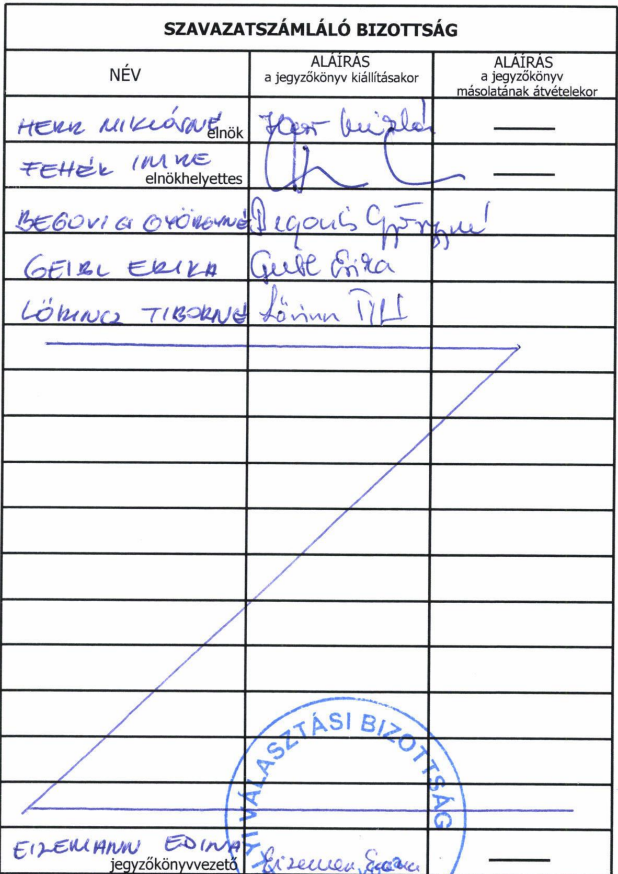 SZAVAZATSZÁMLÁLÓ BIZOTTSÁG
NÉV
ALÁÍRÁS
a jegyzőkönyv kiállításakor
ALÁÍRÁS
a jegyzőkönyv
másolatának átvételekor
HERR MIKLÓSNÉ elnök
FEHÉR IMRE
elnökhelyettes
BEGOVICS GYÖRGYNÉ Begovics Györgyné
GEIBL ERIKA Geibl Erika
LŐRINCZ TIBORNÉ
VÁLASZTÁSI BIZOTTSÁG
EIZEMANN EDINA
jegyzőkönyvvezető